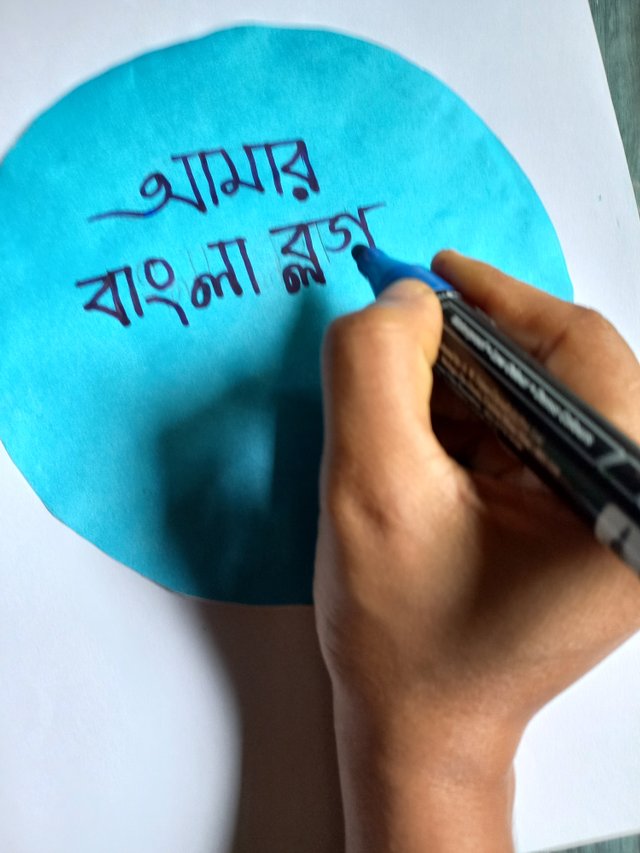 আমার
বাংলা ব্লগ